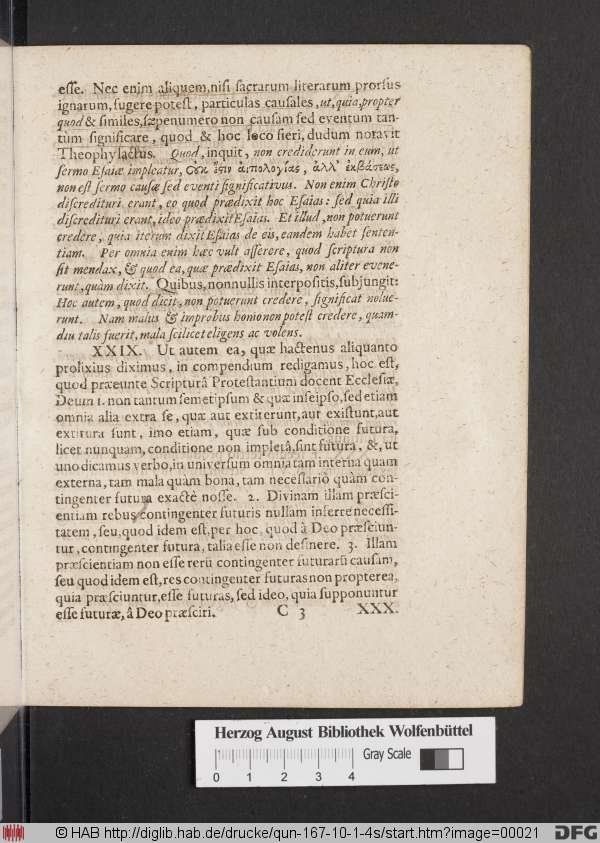 esſe. Nec enim aliquem, niſi ſacrarum literarum prorſus
ignarum, fugere poteſt, particulas cauſales, ut, quia, propter
quod & ſimiles, ſæpenumero non cauſam ſed eventum tan-
tùm ſignificare, quod & hoc loco fieri, dudum notavit
Theophylactus. Quod, inquit, non crediderunt in eum, ut
ſermo Eſaiæ impleatur, ἀλλ' ἐκβάσεως,
non eſt ſermo cauſæ ſed eventi ſignificativus. Non enim Chriſto
diſcredituri erant, eo quod prædixit hoc Eſaias: ſed quia illi
diſcredituri erant, ideo prædixit Eſaias. Et illud, non potuerunt
credere, quia iterum dixit Eſaias de eis, eandem habet ſenten-
tiam. Per omnia enim hæc vult aſſerere, quod ſcriptura non
ſit mendax, & quod ea, quæ prædixit Eſaias, non aliter evene-
runt, quàm dixit. Quibus, nonnullis interpoſitis, ſubjungit:
Hoc autem, quod dicit, non potuerunt credere, ſignificat nolue-
runt. Nam malus & improbus homo non poteſt credere, quam-
diu talis fuerit, mala ſcilicet eligens ac volens.
XXIX. Ut autem ea, quæ hactenus aliquanto
prolixius diximus, in compendium redigamus, hoc eſt,
quod præeunte Scripturâ Proteſtantium docent Eccleſiæ,
Deum 1. non tantum ſemetipſum & quæ in ſeipſo, ſed etiam
omnia alia extra ſe, quæ aut extiterunt, aut exiſtunt, aut
extitura ſunt, imo etiam, quæ ſub conditione futura,
licet nunquam, conditione non impletâ, ſint futura, &, ut
uno dicamus verbo, in univerſum omnia tam interna quam
externa, tam mala quàm bona, tam neceſſario quàm con-
tingenter futura exactè noſſe. 2. Divinam illam præſci-
entiam rebus contingenter futuris nullam inferre neceſſi-
tatem, ſeu, quod idem eſt, per hoc, quod à Deo præſciun-
tur, contingenter futura, talia eſſe non deſinere. 3. Illam
præſcientiam non eſſe rerū contingenter futurarū cauſam,
ſeu quod idem eſt, res contingenter futuras non propterea,
quia præſciuntur, eſſe futuras, ſed ideo, quia ſupponuntur
eſſe futuræ, â Deo præſciri. C 3 XXX.
Herzog August Bibliothek Wolfenbüttel
Gray Scale
0 1 2 3 4
© HAB http://diglib.hab.de/drucke/qun-167-10-1-4s/start.htm?image=00021
DFG